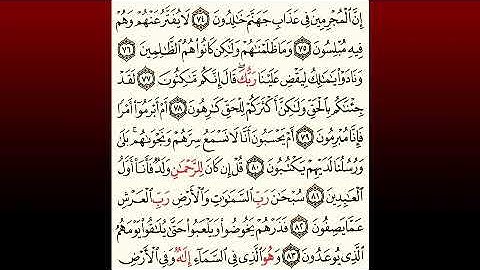 إِنَّ ٱلْمُجْرِمِينَ فِى عَذَابِ جَهَنَّمَ خَٰلِدُونَ ٧٤ لَا يُفَتَّرُ عَنْهُمْ وَهُمْ
فِيهِ مُبْلِسُونَ ٧٥ وَمَا ظَلَمْنَٰهُمْ وَلَٰكِن كَانُوا۟ هُمُ ٱلظَّٰلِمِينَ ٧٦
وَنَادَوْا۟ يَٰمَٰلِكُ لِيَقْضِ عَلَيْنَا رَبُّكَ ۖ قَالَ إِنَّكُم مَّٰكِثُونَ ٧٧ لَقَدْ
جِئْنَٰكُم بِٱلْحَقِّ وَلَٰكِنَّ أَكْثَرَكُمْ لِلْحَقِّ كَٰرِهُونَ ٧٨ أَمْ أَبْرَمُوٓا۟ أَمْرًا
فَإِنَّا مُبْرِمُونَ ٧٩ أَمْ يَحْسَبُونَ أَنَّا لَا نَسْمَعُ سِرَّهُمْ وَنَجْوَىٰهُم ۚ بَلَىٰ
وَرُسُلُنَا لَدَيْهِمْ يَكْتُبُونَ ٨٠ قُلْ إِن كَانَ لِلرَّحْمَٰنِ وَلَدٌ فَأَنَا۠ أَوَّلُ
ٱلْعَٰبِدِينَ ٨١ سُبْحَٰنَ رَبِّ ٱلسَّمَٰوَٰتِ وَٱلْأَرْضِ رَبِّ ٱلْعَرْشِ
عَمَّا يَصِفُونَ ٨٢ فَذَرْهُمْ يَخُوضُوا۟ وَيَلْعَبُوا۟ حَتَّىٰ يُلَٰقُوا۟ يَوْمَهُمُ
ٱلَّذِى يُوعَدُونَ ٨٣ وَهُوَ ٱلَّذِى فِى ٱلسَّمَآءِ إِلَٰهٌ وَفِى ٱلْأَرْضِ